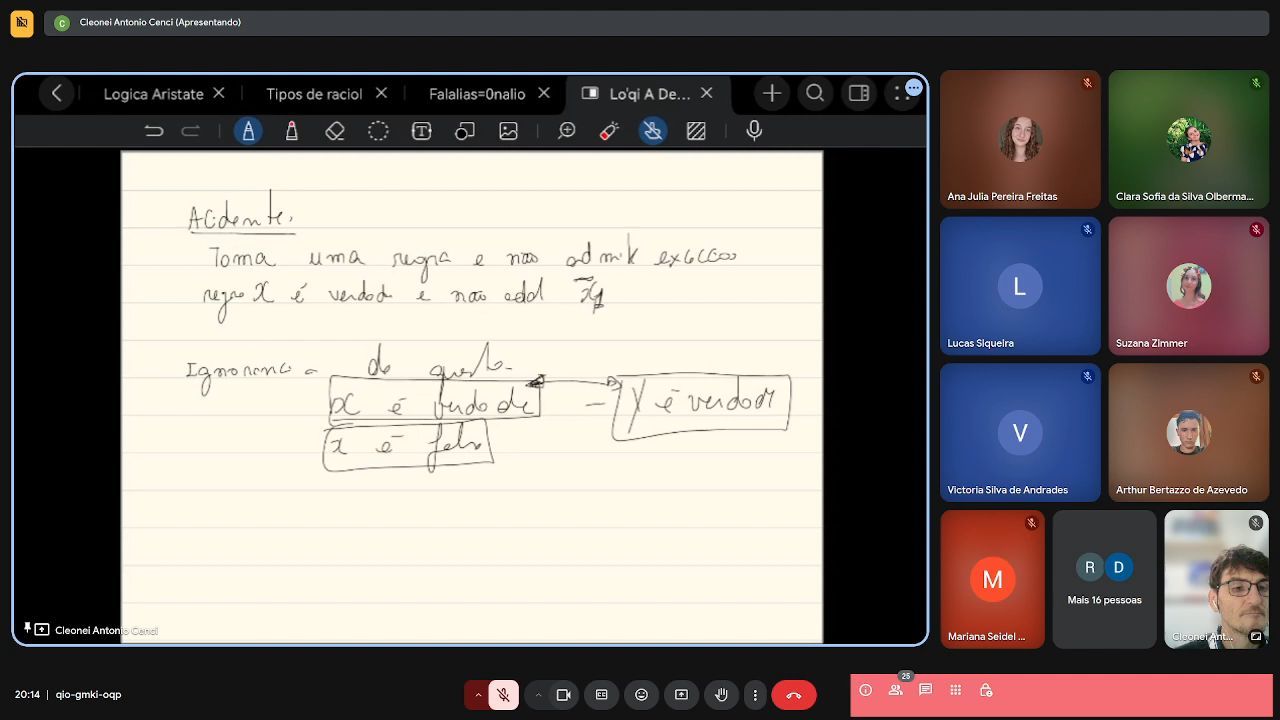 C Cleonei Antonio Cenci (Apresentando)
Logica Aristate × Tipos de raciol × Falalias=0nalio × Lo'qi A De... ×
Acidente.
Toma uma regra e não
regra X é verdad e não
Ignoranc de
x é verdade — Y é verdade
x é fals
Cleonei Antonio Cenci
Ana Julia Pereira Freitas
Clara Sofia da Silva Olberma...
L
Lucas Siqueira
Suzana Zimmer
V
Victoria Silva de Andrades
Arthur Bertazzo de Azevedo
M
Mariana Seidel ...
R D
Mais 16 pessoas
Cleonei Ant...
20:14 | qio-gmki-oqp
25